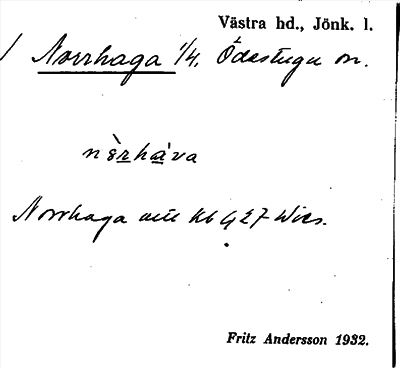 Västra hd., Jönk. l.
/ Norrhaga 1/4, Ödestugu sn.
nèrháva
Norrhaga
Fritz Andersson 1932.